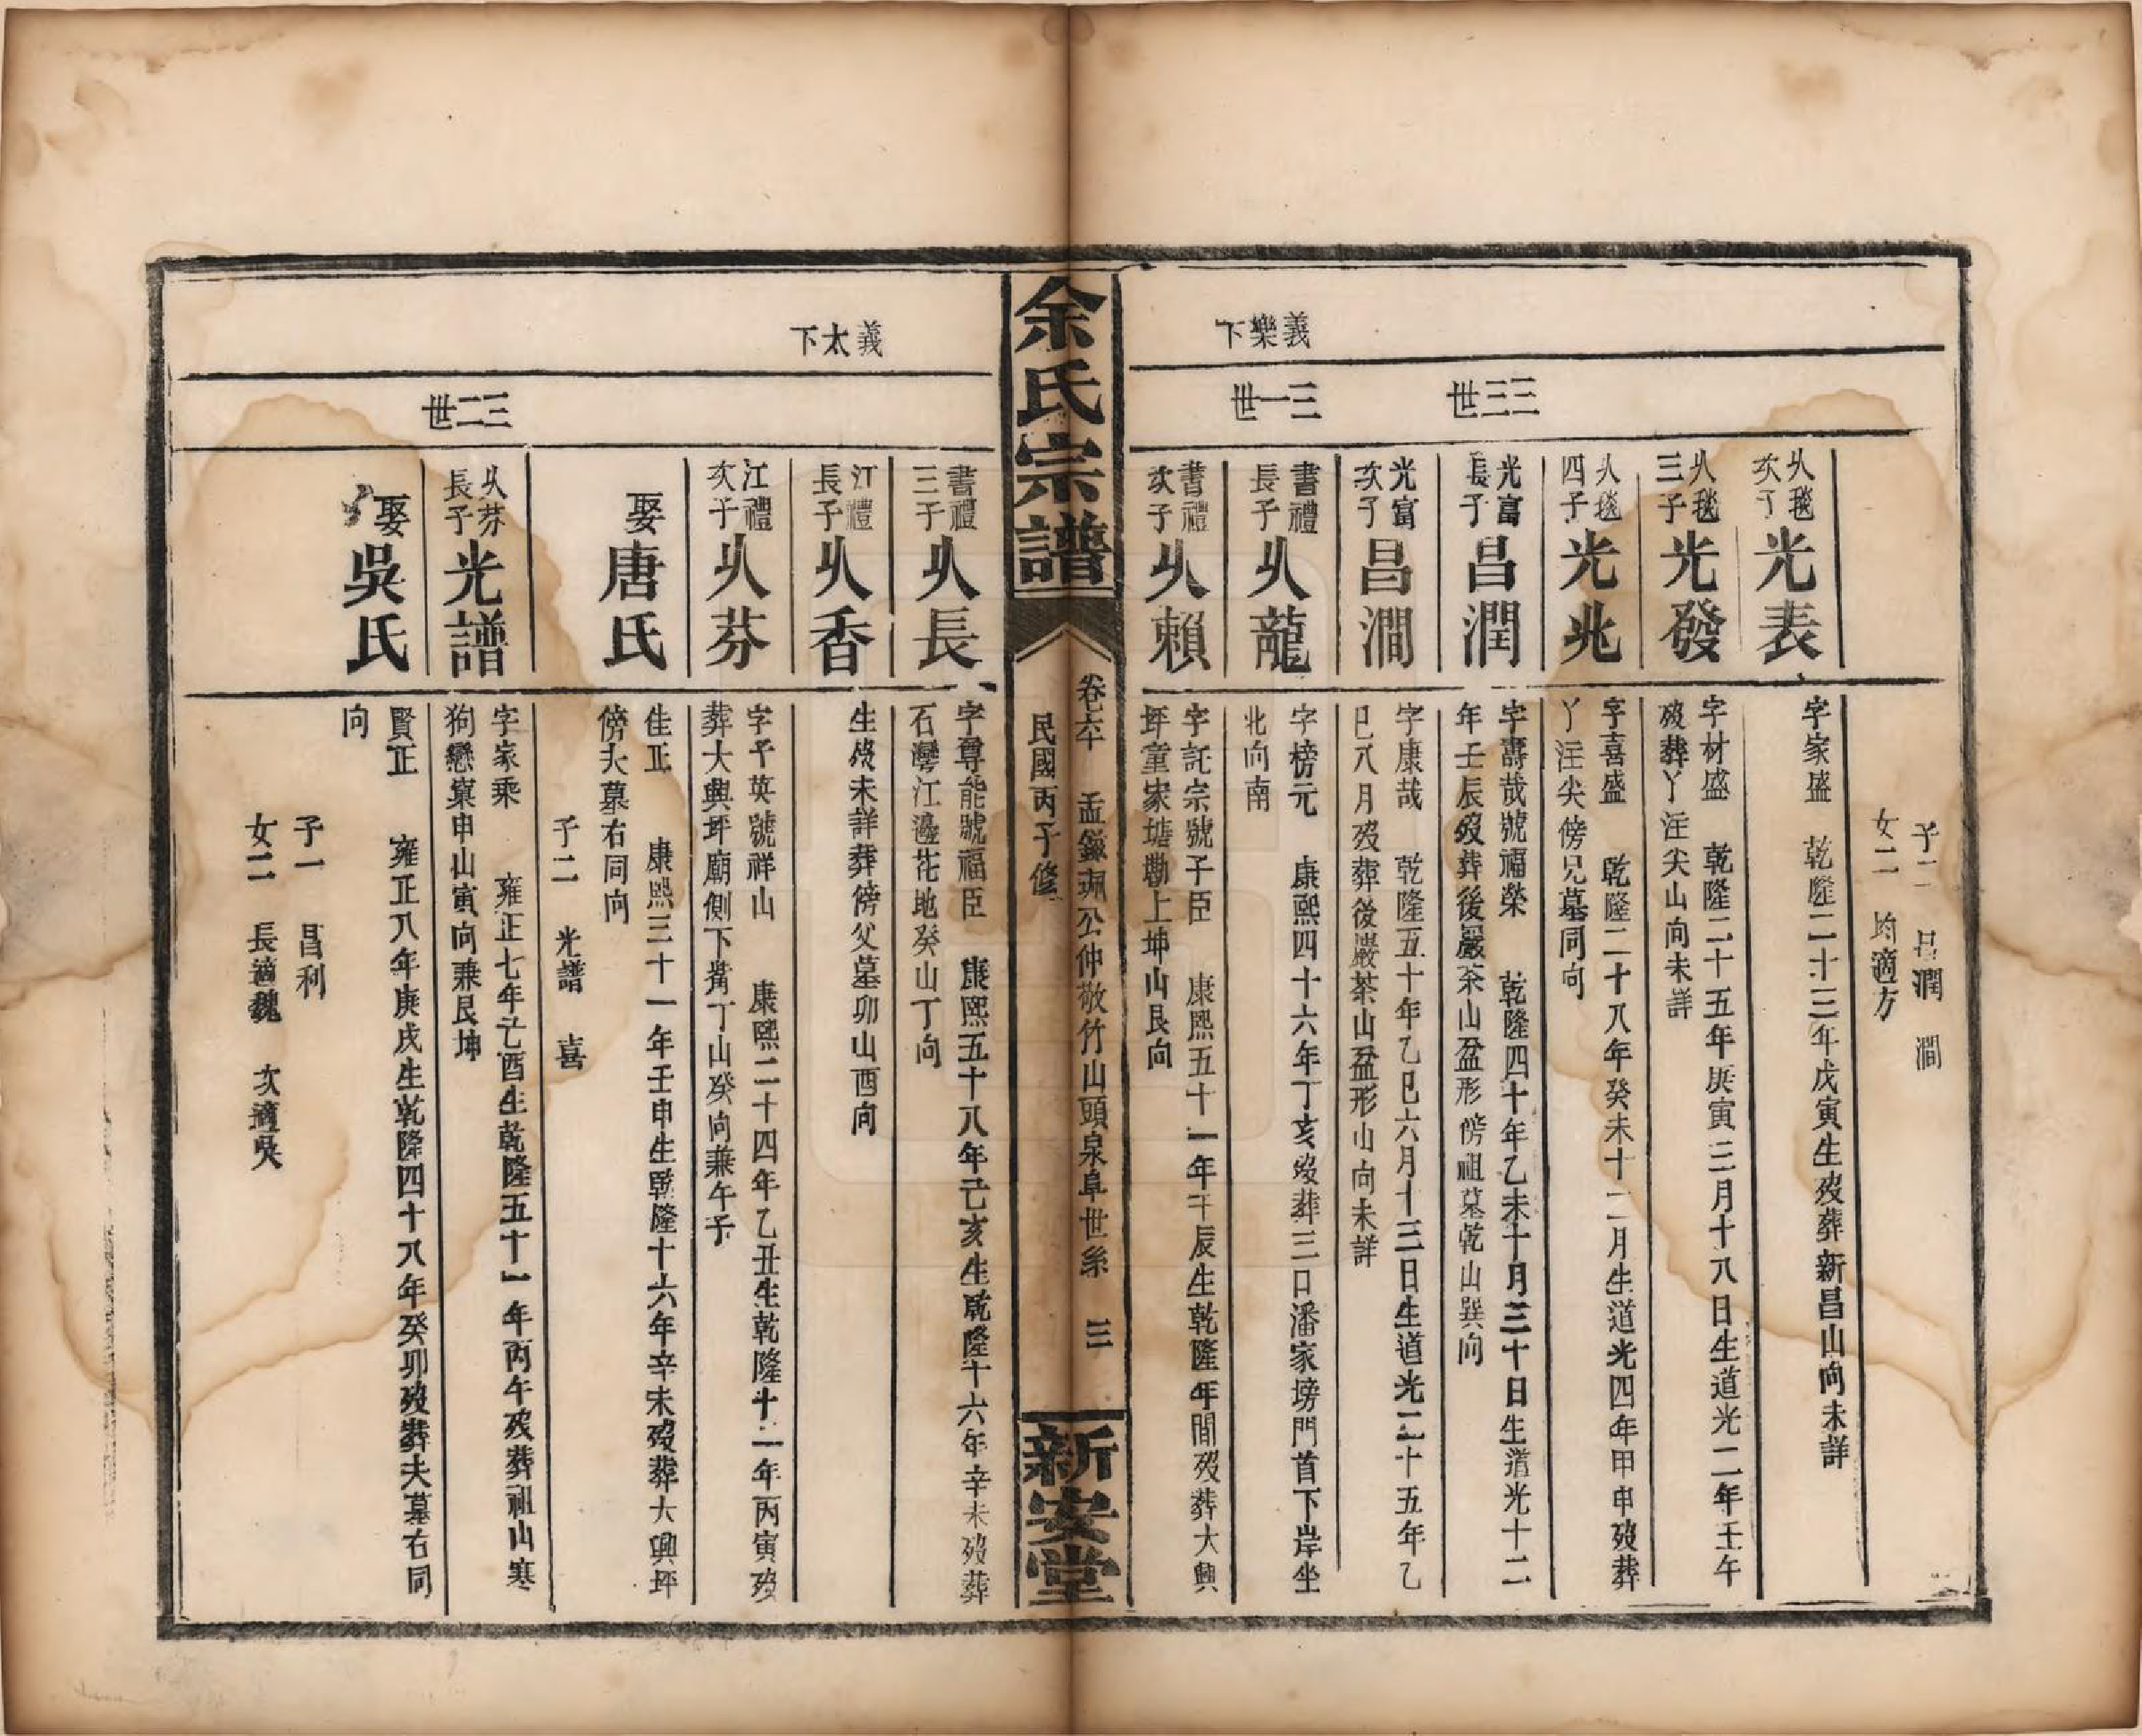 義樂下
三三世
三一世
子二 昌潤 澗
女二 均適方
乆毯
次子
光表
字家盛 乾隆二十三年戊寅生歿葬新昌山向未詳
乆毯
三子
光發
字材盛 乾隆二十五年庚寅三月十八日生道光二年壬午
歿葬丫汪尖山向未詳
乆毯
四子
光兆
字喜盛 乾隆二十八年癸未十二月生道光四年甲申歿葬
丫汪尖傍兄墓同向
光富
長子
昌潤
字壽哉號福榮 乾隆四十年乙未十月三十日生道光十二
年壬辰歿葬後嚴茶山盆形傍祖墓乾山巽向
光富
次子
昌澗
字康哉 乾隆五十年乙巳六月十三日生道光二十五年乙
巳八月歿葬後嚴茶山盆形山向未詳
書禮
長子
乆龍
字榜元 康熙四十六年丁亥歿葬三口潘家塝門首下岸坐
北向南
書禮
次子
乆賴
字託宗號子臣 康熙五十一年壬辰生乾隆年間歿葬大興
坪童家塘墈上坤山艮向
余氏宗譜
卷六 孟錄珮公仲敬竹山頭泉阜世系 三
民國丙子修
新安堂
義太下
三二世
書禮
三子
乆長
字尊能號福臣 康熙五十八年己亥生乾隆十六年辛未歿葬
石灣江邊花地癸山丁向
江禮
長子
乆香
生歿未詳葬傍父墓卯山酉向
江禮
次子
乆芬
字千英號祥山 康熙二十四年乙丑生乾隆十一年丙寅歿
葬大興坪廟側下觜丁山癸向兼午子
娶唐氏
佳正 康熙三十一年壬申生乾隆十六年辛未歿葬大興坪
傍夫墓右同向
子二 光譜 喜
乆芬
長子
光譜
字家乘 雍正七年己酉生乾隆五十一年丙午歿葬祖山寒
狗戀窠申山寅向兼艮坤
娶吳氏
賢正 雍正八年庚戌生乾隆四十八年癸卯歿葬夫墓右同
向
子一 昌利
女二 長適魏 次適吳